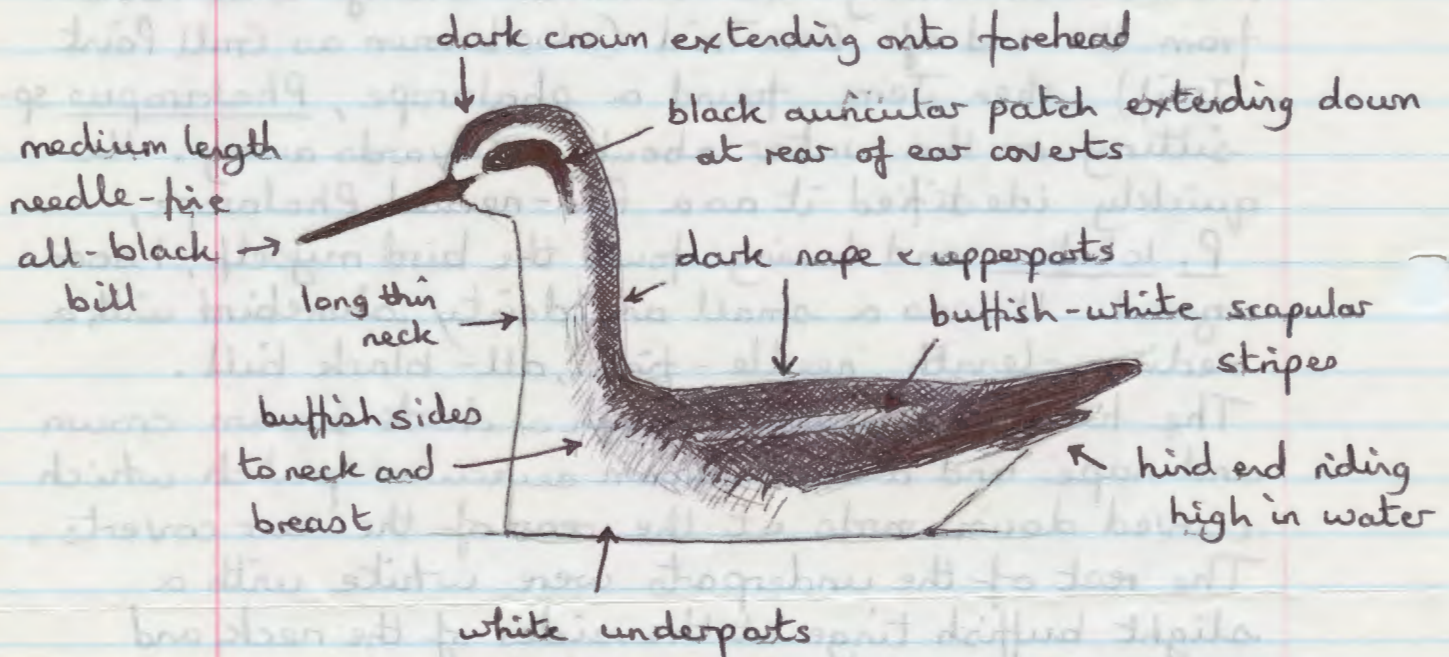 dark crown extending onto forehead
black auricular patch extending down
at rear of ear coverts
medium length
needle-fine
all-black
bill
long thin
neck
dark nape & upperparts
buffish-white scapular
stripes
buffish sides
to neck and
breast
hind end riding
high in water
white underparts